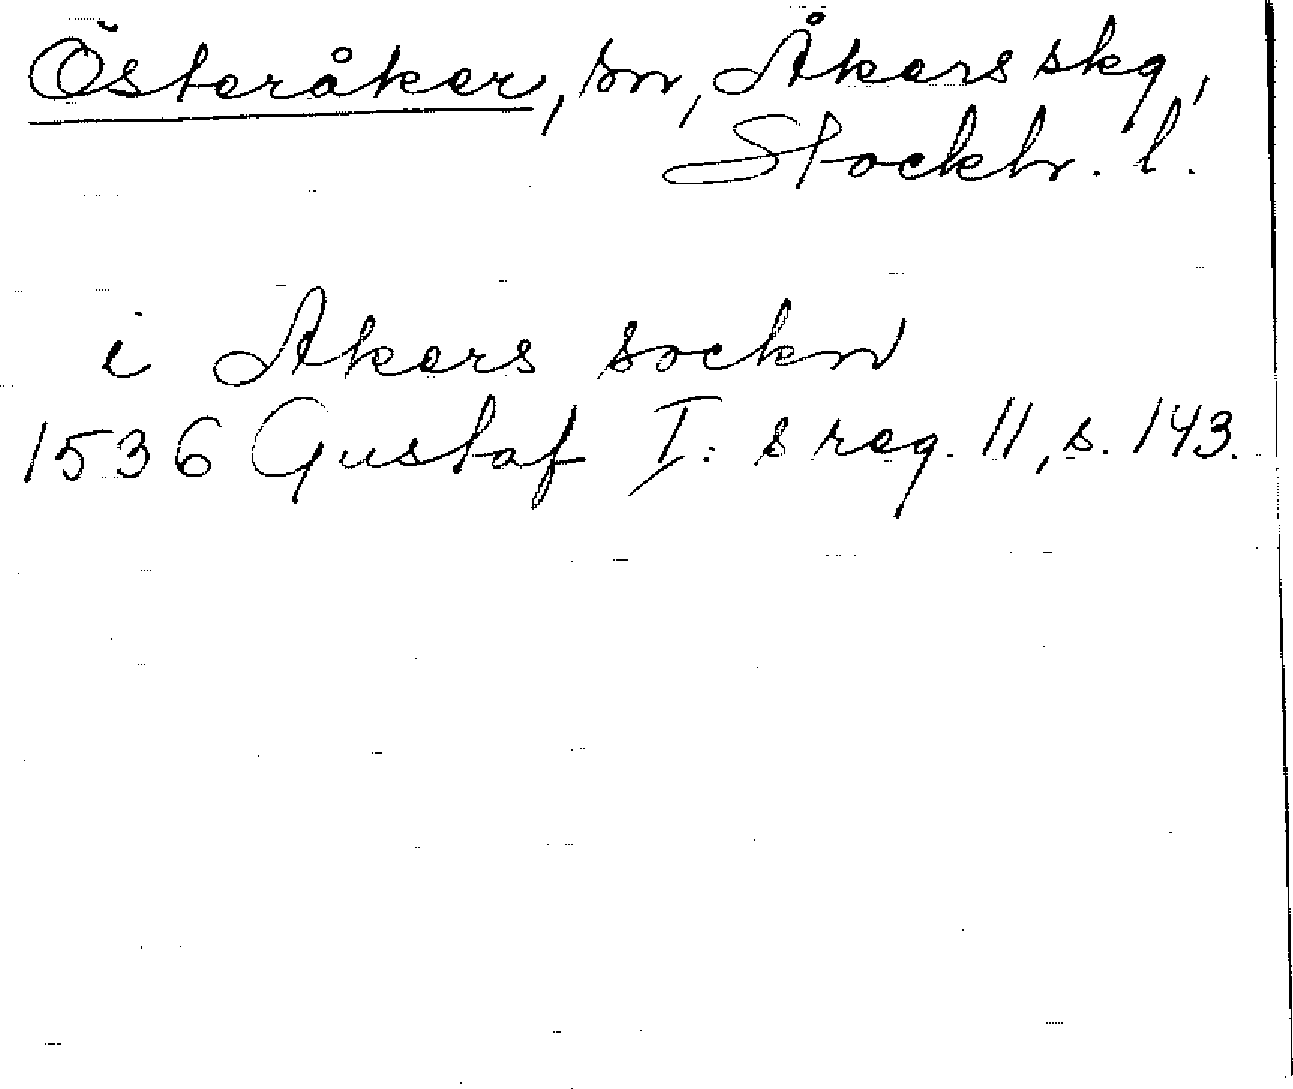 Österåker, sn, Åkers skg,
Stockh. l.
i Akers sockn
1536 Gustaf I:s reg. 11, s. 143.